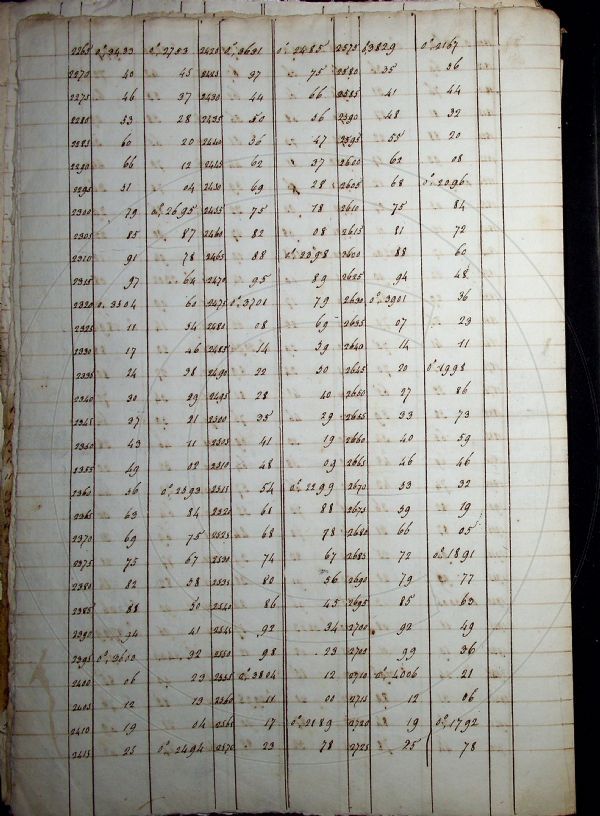 2265 0,,3433 0,,2753 2420 0,,3631 0,,2485 2575 0,,3829 0,,2167
2270 40 45 2425 37 75 2580 35 56
2275 46 37 2430 44 66 2585 41 44
2280 53 28 2435 50 56 2590 48 32
2285 60 20 2440 56 47 2595 55 20
2290 66 12 2445 62 37 2600 62 08
2295 51 04 2450 69 28 2605 68 0,,2096
2300 79 0,,2695 2455 75 18 2610 75 84
2305 85 87 2460 82 08 2615 81 72
2310 91 78 2465 88 0,,2398 2600 88 60
2315 97 64 2470 95 89 2625 94 48
2320 0,,3504 60 2475 0,,3701 79 2630 0,,3901 36
2325 11 54 2480 08 69 2635 07 23
2330 17 46 2485 14 59 2640 14 11
2335 24 38 2490 22 50 2645 20 0,,1998
2340 30 29 2495 28 40 2650 27 86
2345 37 21 2500 35 29 2655 33 73
2350 43 11 2505 41 19 2660 40 59
2355 49 02 2510 48 09 2665 46 46
2360 56 0,,2593 2515 54 0,,2299 2670 53 32
2365 63 84 2520 61 88 2675 59 19
2370 69 75 2525 68 78 2680 66 05
2375 75 67 2530 74 67 2685 72 0,,1891
2380 82 58 2535 80 56 2690 79 77
2385 88 50 2540 86 45 2695 85 63
2390 94 41 2545 92 34 2700 92 49
2395 0,,3600 32 2550 98 23 2705 99 36
2400 06 23 2555 0,,3804 12 2710 0,,4006 21
2405 12 13 2560 11 00 2715 12 06
2410 19 04 2565 17 0,,2189 2720 19 0,,1792
2415 25 0,,2494 2570 23 78 2725 25 78